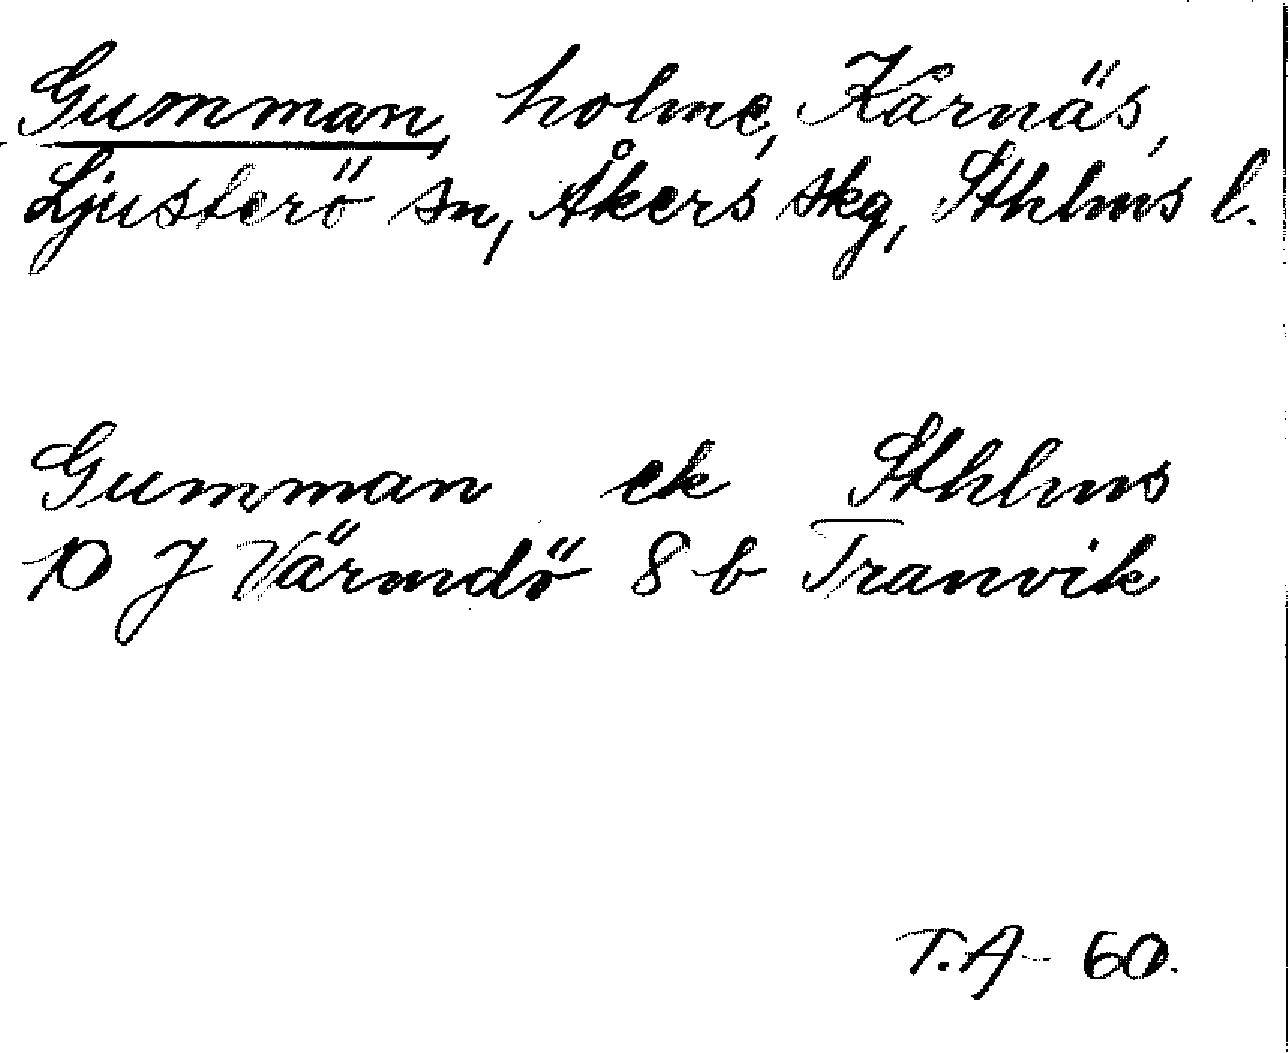 Gumman, holme, Kårnäs,
Ljusterö sn, Åkers skg, Sthlms l.
Gumman ek Sthlms
10 J Värmdö 8 b Tranvik
T.A- 60.